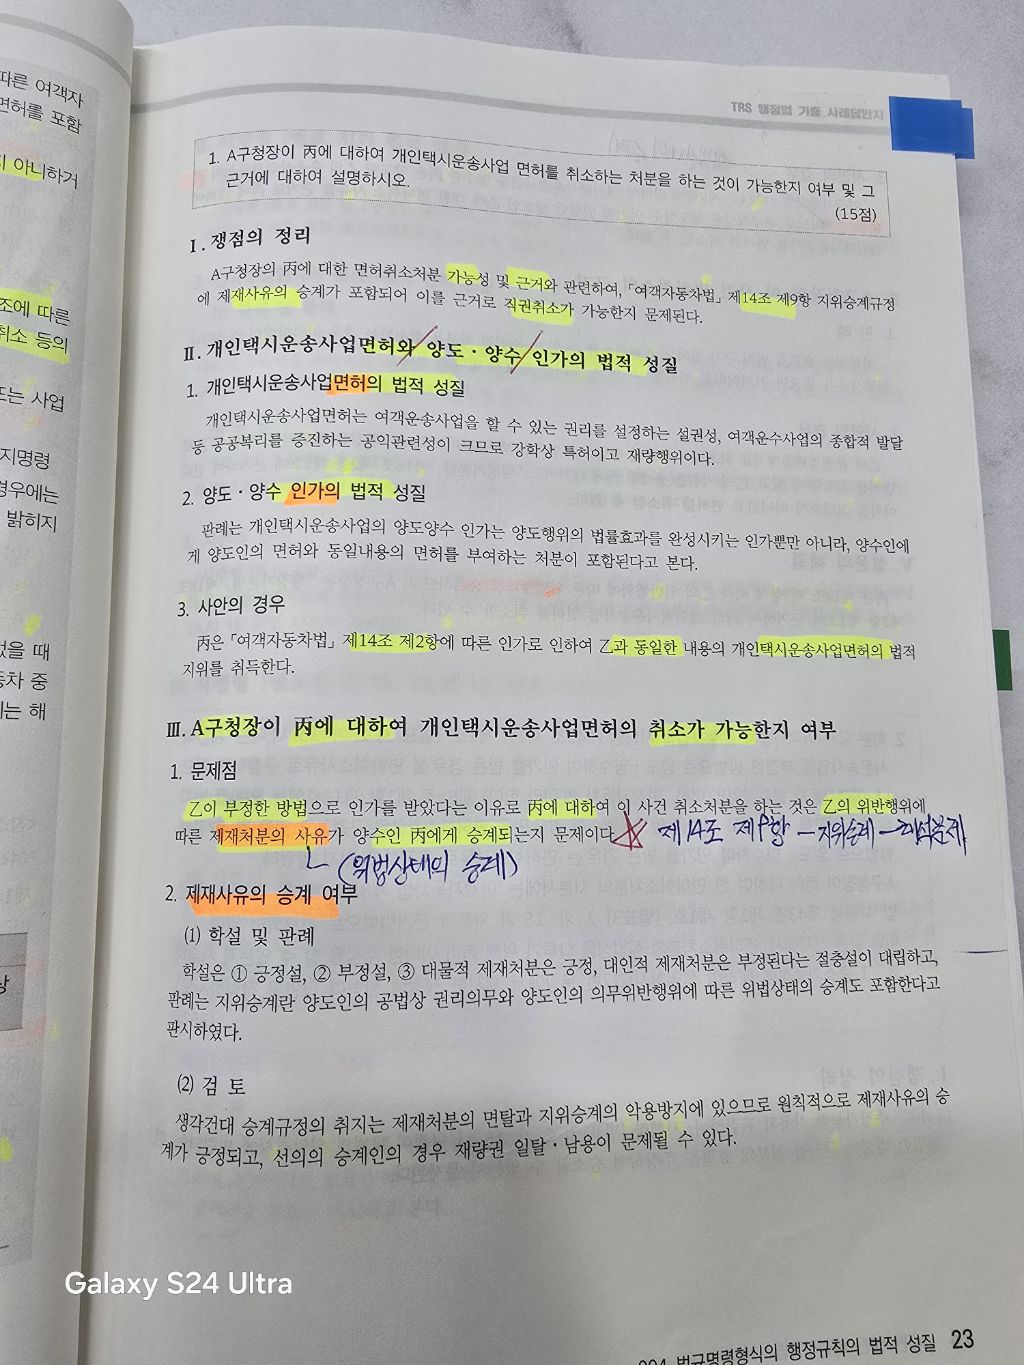 따른 여객자
면허를 포함
아니하거
조에 따른
취소 등의
또는 사업
지명령
경우에는
밝히지
었을 때
동차 중
에는 해
상
TRS 행정법 기출 사례답안지
1. A구청장이 丙에 대하여 개인택시운송사업 면허를 취소하는 처분을 하는 것이 가능한지 여부 및 그
근거에 대하여 설명하시오.
(15점)
Ⅰ. 쟁점의 정리
A구청장의 丙에 대한 면허취소처분 가능성 및 근거와 관련하여, 「여객자동차법」 제14조 제9항 지위승계규정
에 제재사유의 승계가 포함되어 이를 근거로 직권취소가 가능한지 문제된다.
Ⅱ. 개인택시운송사업면허와 양도·양수 인가의 법적 성질
1. 개인택시운송사업면허의 법적 성질
개인택시운송사업면허는 여객운송사업을 할 수 있는 권리를 설정하는 설권성, 여객운수사업의 종합적 발달
등 공공복리를 증진하는 공익관련성이 크므로 강학상 특허이고 재량행위이다.
2. 양도·양수 인가의 법적 성질
판례는 개인택시운송사업의 양도양수 인가는 양도행위의 법률효과를 완성시키는 인가뿐만 아니라, 양수인에
게 양도인의 면허와 동일내용의 면허를 부여하는 처분이 포함된다고 본다.
3. 사안의 경우
丙은 「여객자동차법」 제14조 제2항에 따른 인가로 인하여 乙과 동일한 내용의 개인택시운송사업면허의 법적
지위를 취득한다.
Ⅲ. A구청장이 丙에 대하여 개인택시운송사업면허의 취소가 가능한지 여부
1. 문제점
乙이 부정한 방법으로 인가를 받았다는 이유로 丙에 대하여 이 사건 취소처분을 하는 것은 乙의 위반행위에
따른 제재처분의 사유가 양수인 丙에게 승계되는지 문제이다. 제14조 제9항 - 지위승계 → 해석문제
ㄴ (위법상태의 승계)
2. 제재사유의 승계 여부
(1) 학설 및 판례
학설은 ① 긍정설, ② 부정설, ③ 대물적 제재처분은 긍정, 대인적 제재처분은 부정된다는 절충설이 대립하고,
판례는 지위승계란 양도인의 공법상 권리의무와 양도인의 의무위반행위에 따른 위법상태의 승계도 포함한다고
판시하였다.
(2) 검 토
생각건대 승계규정의 취지는 제재처분의 면탈과 지위승계의 악용방지에 있으므로 원칙적으로 제재사유의 승
계가 긍정되고, 선의의 승계인의 경우 재량권 일탈·남용이 문제될 수 있다.
Galaxy S24 Ultra
004 법규명령형식의 행정규칙의 법적 성질 23